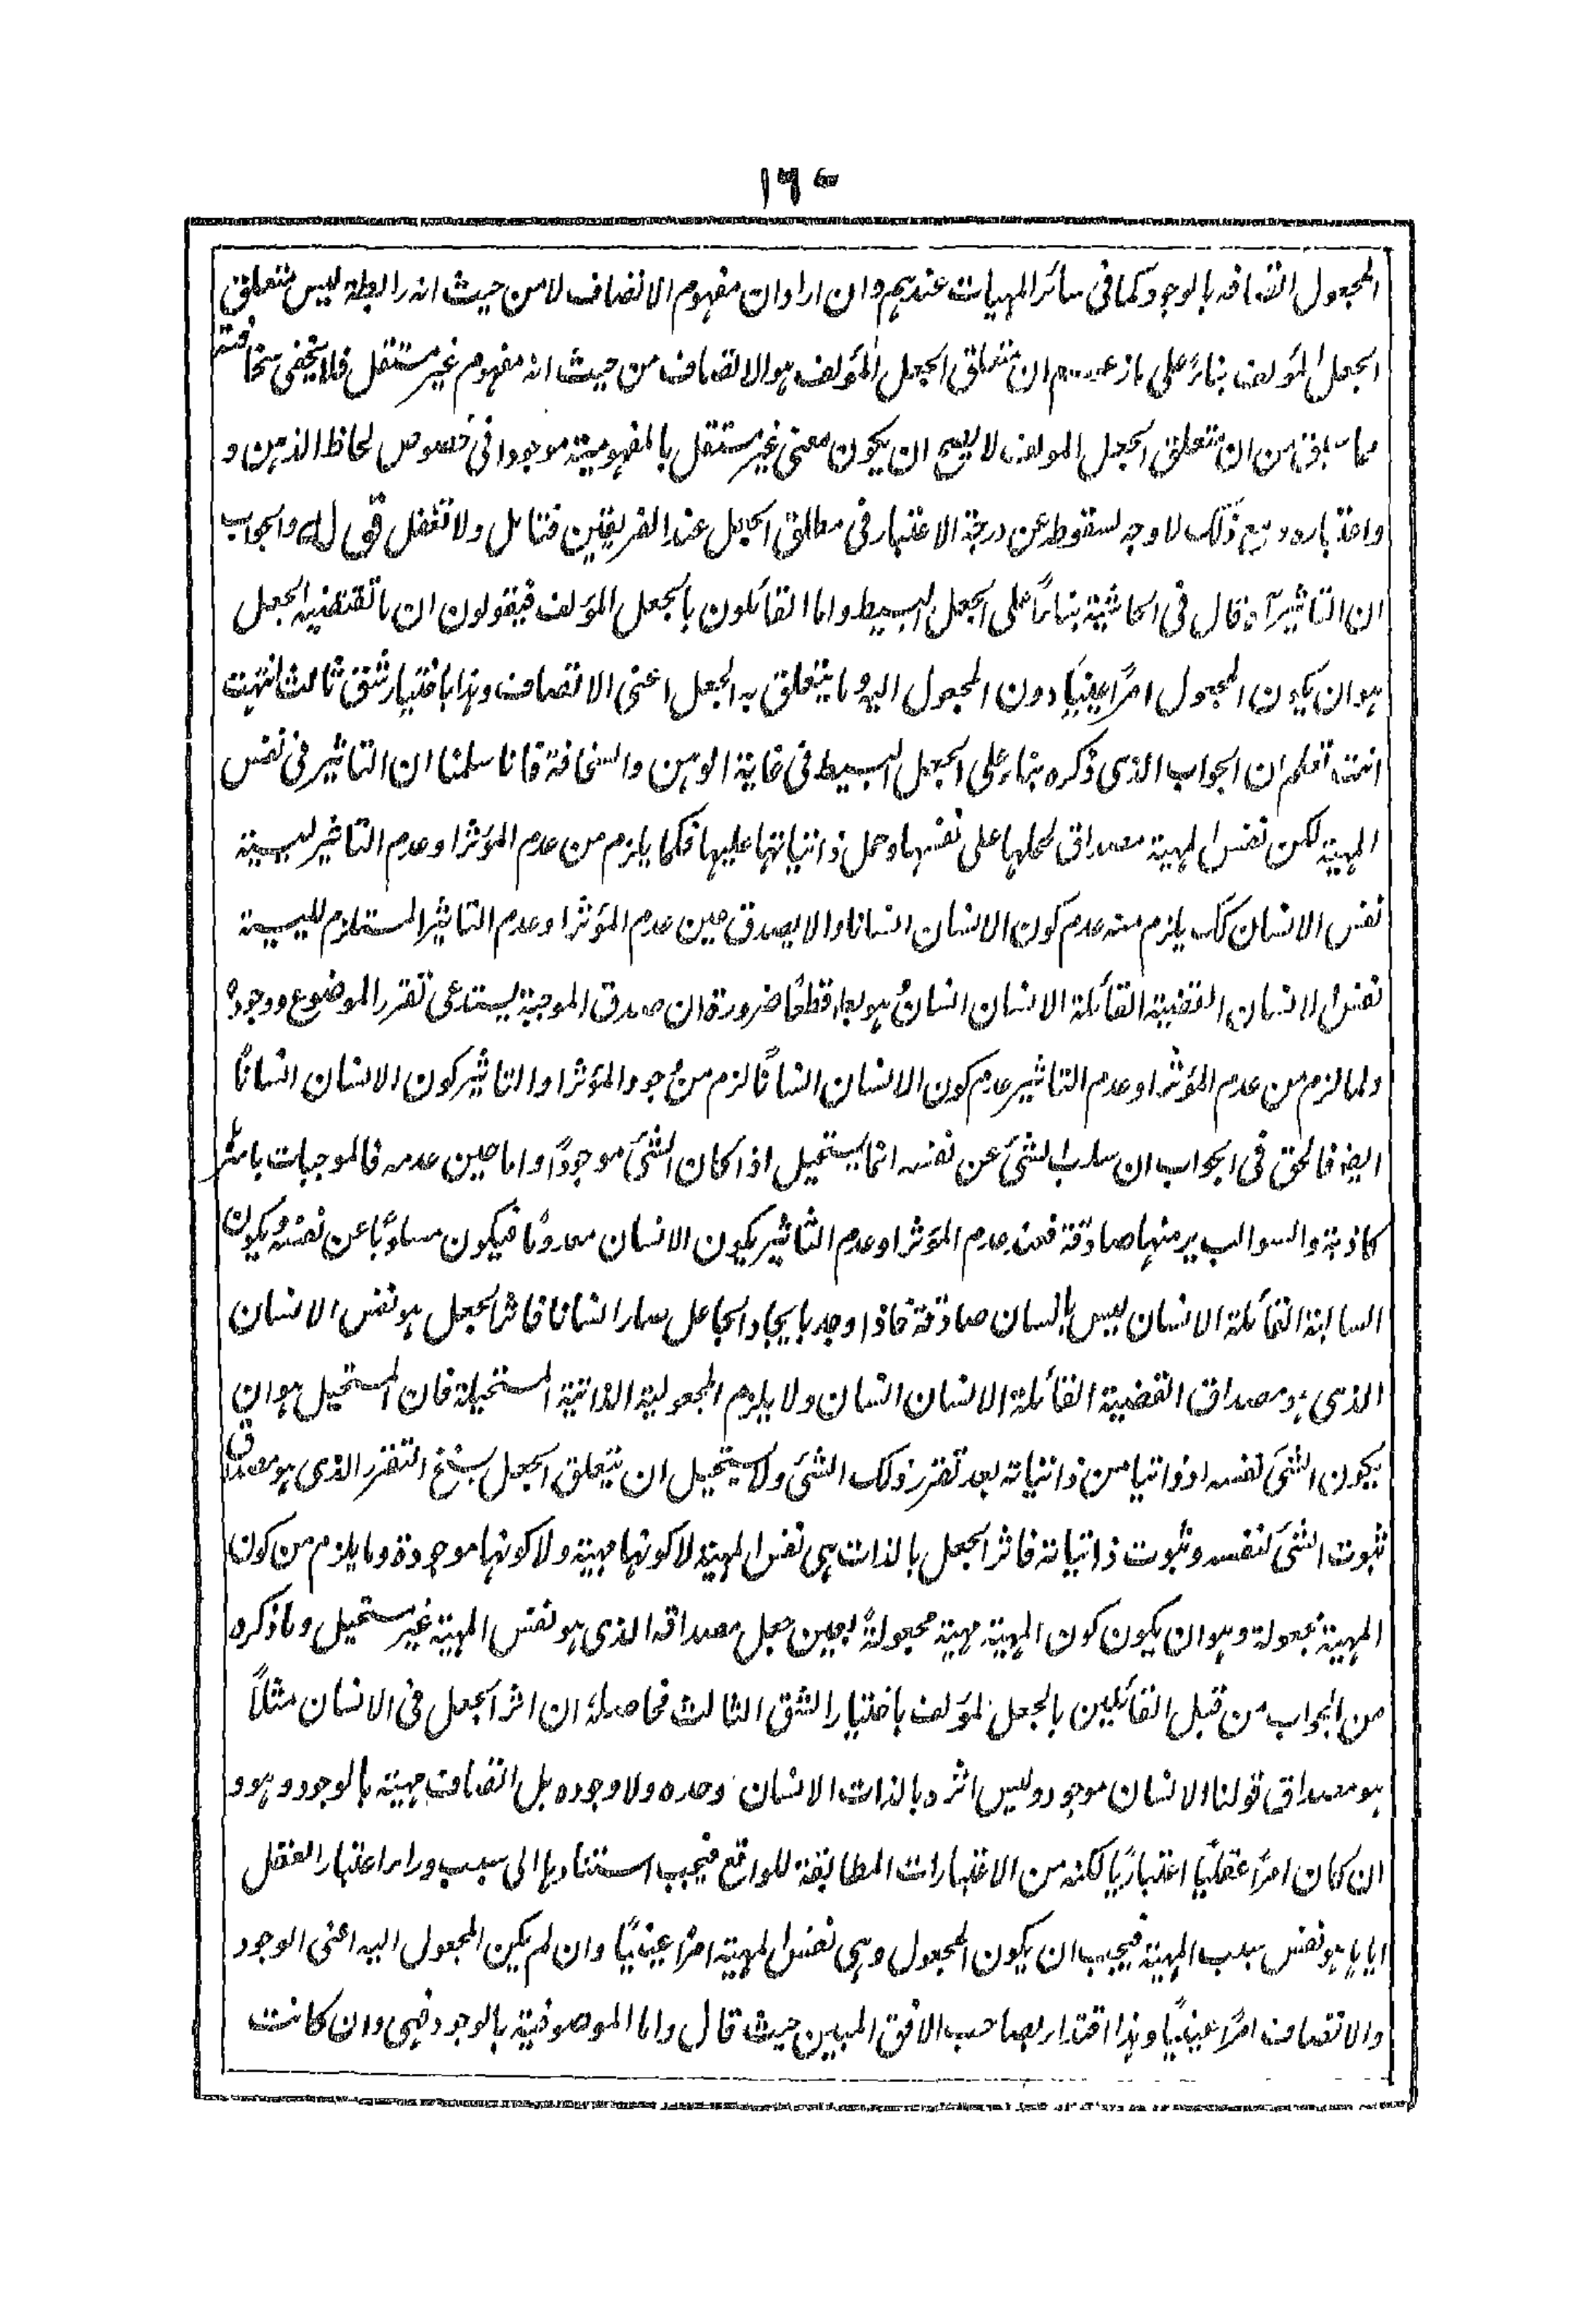 ١٦٠
المجعول اتصافه بالوجود كما فى سائر المهيات عندهم وان اراد ان مفهوم الاتصاف لا من حيث انه رابطة ليس متعلق
الجعل المؤلف بناءً على ما زعمـ ان متعلق الجعل المؤلف هو الاتصاف من حيث انه مفهوم غير مستقل فلا يخفى سخافته
مما سبق من ان متعلق الجعل المولف لا يصح ان يكون معنى غير مستقل بالمفهومية موجودا فى خصوص لحاظ الذهن و
واعتباره ومع ذلك لا وجه لسقوطه عن درجة الاعتبار فى مطلق الجعل عند الفريقين فتامل ولا تغفل قوله والجواب
ان التاثير آه قال فى الحاشية بناءً على الجعل البسيط واما القائلون بالجعل المؤلف فيقولون ان ما تقتضيه الجعل
هو ان يكون المجعول امراً عينياً دون المجعول اليه وما يتعلق به الجعل اعنى الاتصاف وهذا باختيار شق ثالث انتهت
انت تعلم ان الجواب الذى ذكره بناء على الجعل البسيط فى غاية الوهن والسخافة فانا سلمنا ان التاثير فى نفس
المهية لكن نفس المهية مصداق لحملها على نفسها وحمل ذاتياتها عليها فكما يلزم من عدم المؤثر او عدم التاثير ليسية
نفس الانسان كك يلزم منه عدم كون الانسان انسانا والا يصدق حين عدم المؤثر او عدم التاثير المستلزم لليسية
نفس الانسان القضية القائلة الانسان انسانٌ هو بط قطعًا ضرورة ان صدق الموجبة يستدعى تقرر الموضوع ووجوده
ولما لزم من عدم المؤثر او عدم التاثير عدم كون الانسان انسانًا لزم من وجود المؤثر او التاثير كون الانسان انسانًا
ايضا فالحق فى الجواب ان سلب الشئ عن نفسه انما يستحيل اذا كان الشئ موجودًا واما حين عدمه فالموجبات باسرها
كاذبة والسوالب برمتها صادقة فعند عدم المؤثر او عدم التاثير يكون الانسان معدومًا فيكون مسلوبًا عن نفسه ويكون
السالبة القائلة الانسان ليس بإنسان صادقة فاذا وجد بايجاد الجاعل صار انسانا فاثر الجعل هو نفس الانسان
الذى هو مصداق القضية القائلة الانسان انسان ولا يلزم المجعولية الذاتية المستحيلة فان المستحيل هو ان
يكون الشئ نفسه او ذاتيا من ذاتياته بعد تقرر ذلك الشئ ولا يستحيل ان يتعلق الجعل بسنخ التقرر الذى هو مصداق
ثبوت الشئ لنفسه وثبوت ذاتياته فاثر الجعل بالذات هى نفس المهية لا كونها مهية ولا كونها موجودة وما يلزم من كون
المهية مجعولة وهو ان يكون كون المهية مهية مجعولةً بعين جعل مصداقه الذى هو نفس المهية غير مستحيل وما ذكره
من الجواب من قبل القائلين بالجعل المؤلف باختيار الشق الثالث فحاصله ان اثر الجعل فى الانسان مثلاً
هو مصداق قولنا الانسان موجود وليس اثره بالذات الانسان وحده ولا وجوده بل اتصاف مهية بالوجود وهو و
ان كان امرًا عقليًا اعتباريًا لكنه من الاعتبارات المطابقة للواقع فيجب استنادها الى سبب وراء اعتبار العقل
اياها هو نفس سبب المهية فيجب ان يكون المجعول وهى نفس المهية امرًا عينيًا وان لم يكن المجعول اليه اعنى الوجود
والاتصاف امرًا عينيًا وهذا اقتداء بصاحب الافق المبين حيث قال واما الموصوفية بالوجود فهى وان كانت